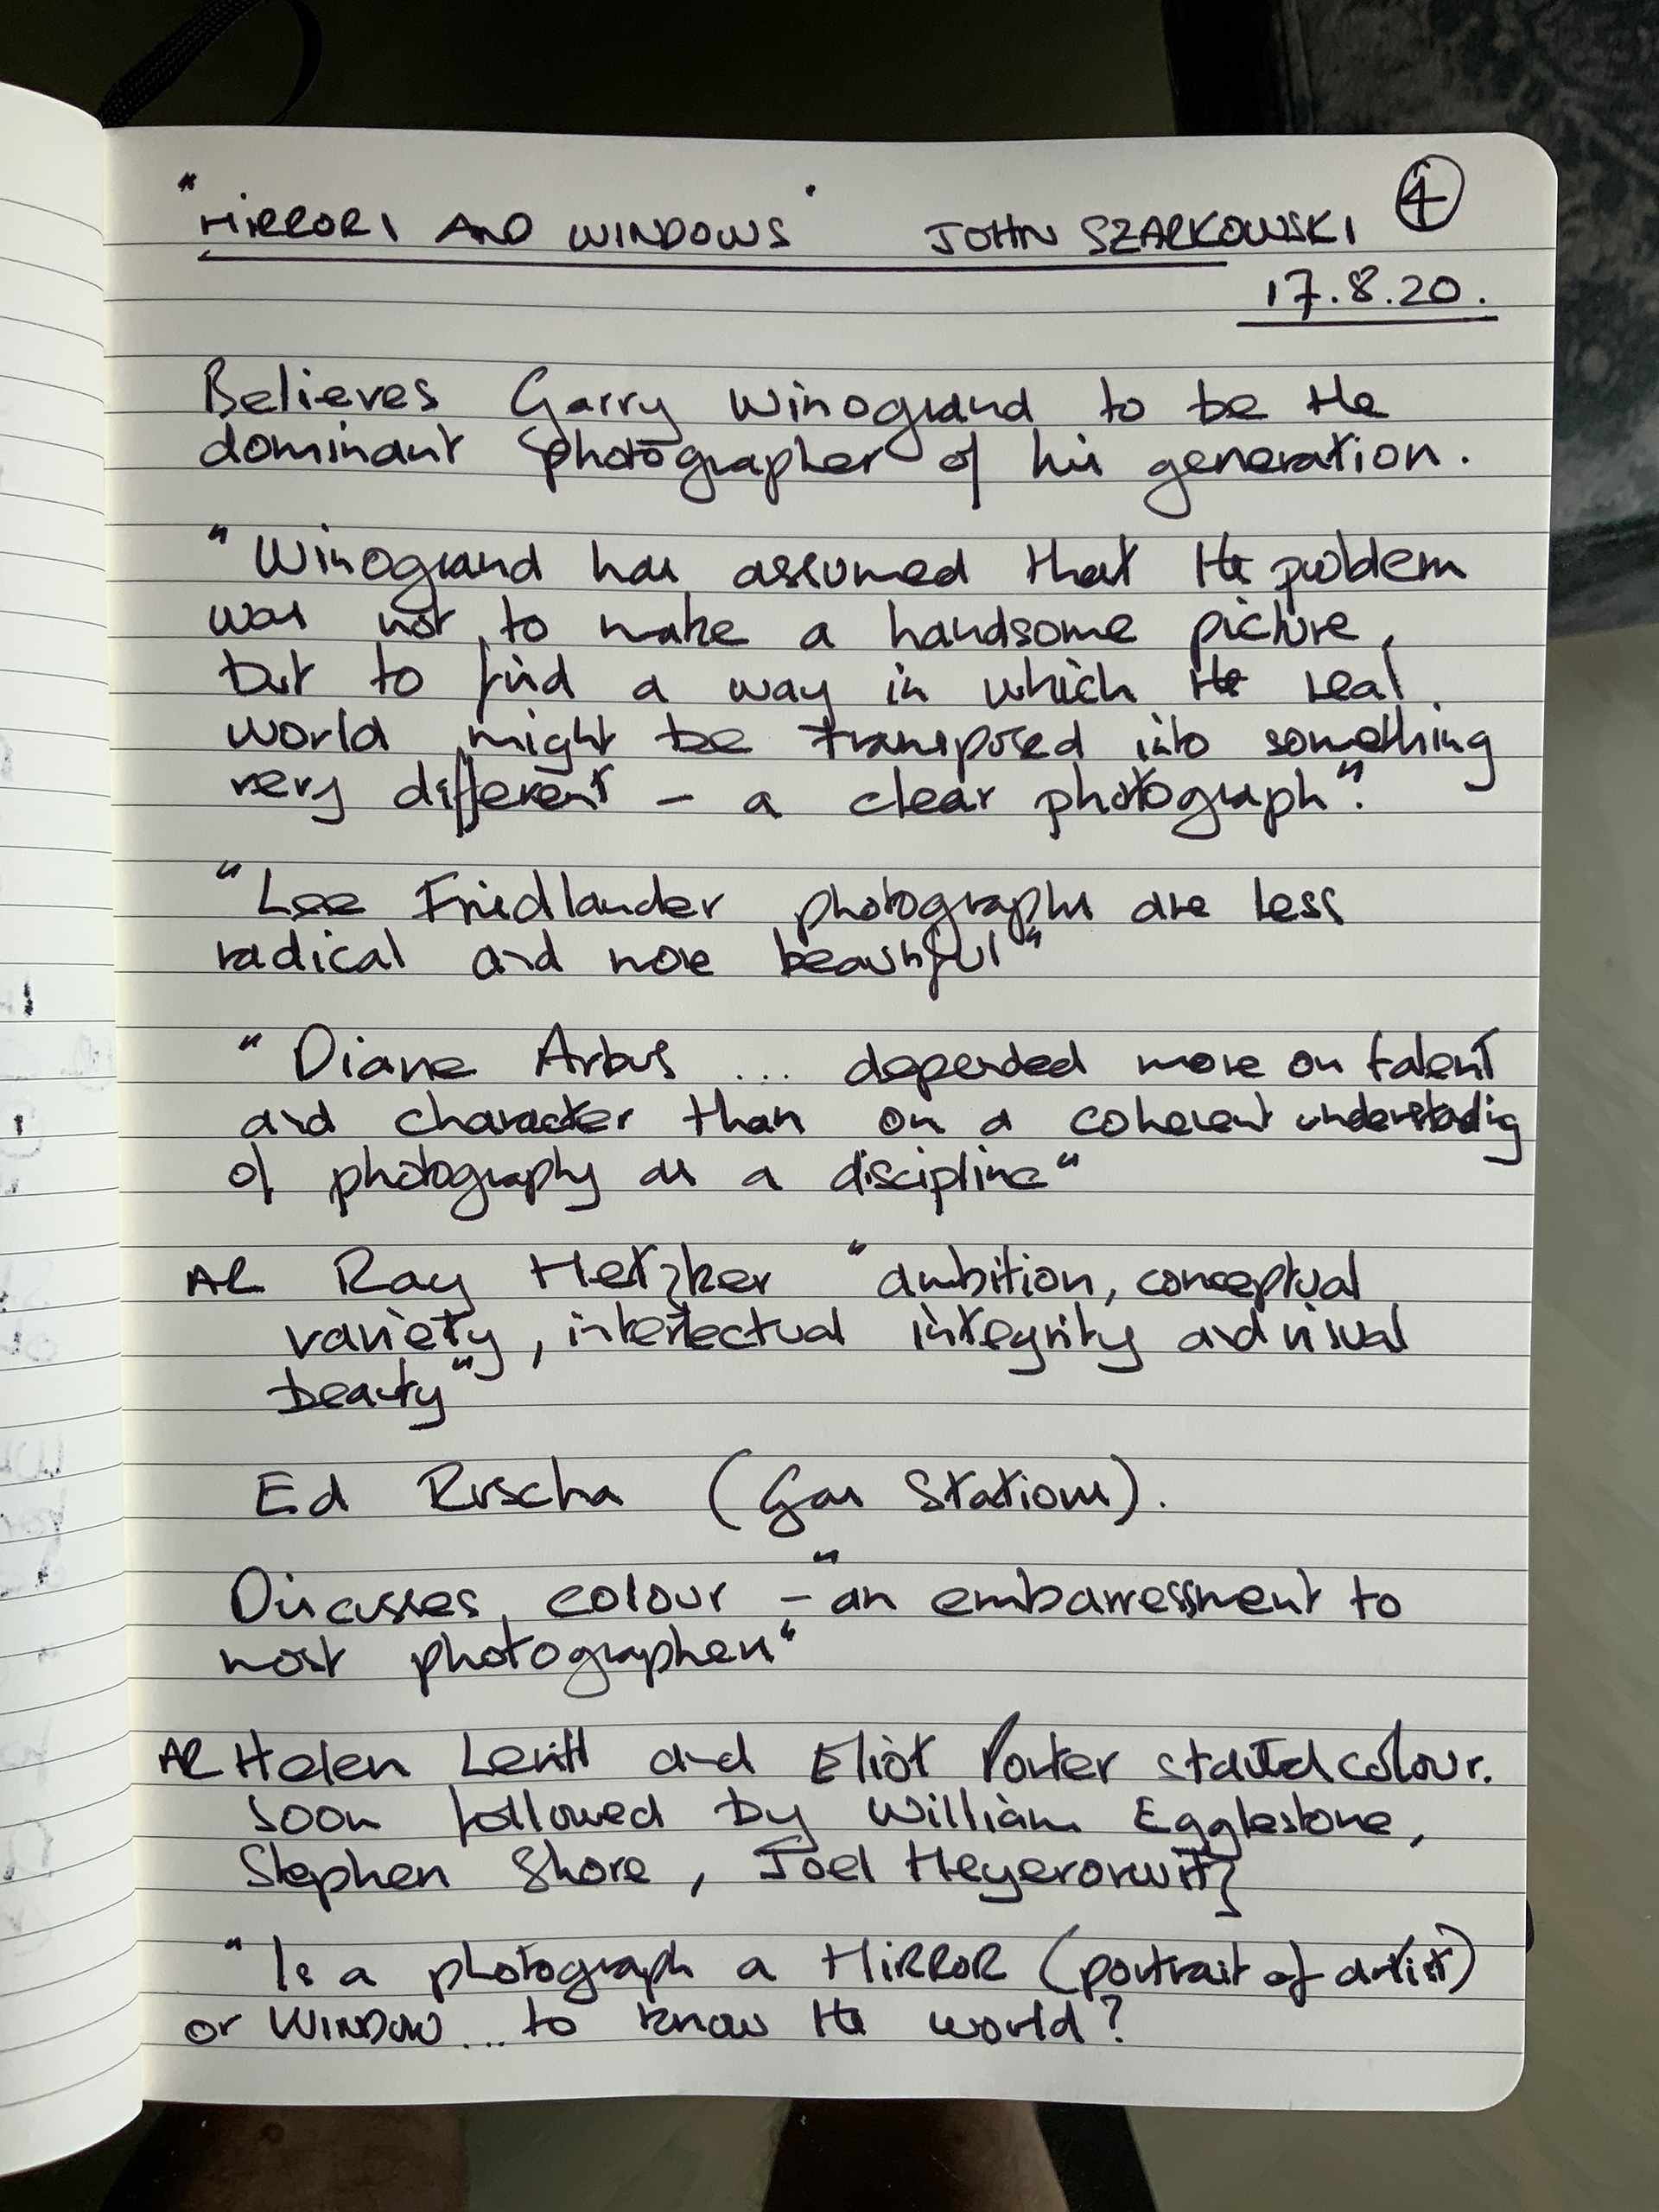 "MIRRORS AND WINDOWS" JOHN SZARKOWSKI 4
17.8.20.
Believes Garry Winogrand to be the
dominant photographer of his generation.
"Winogrand has assumed that the problem
was not to make a handsome picture,
but to find a way in which the real
world might be transposed into something
very different - a clear photograph".
"Lee Friedlander photographs are less
radical and more beautiful"
"Diane Arbus ... depended more on talent
and character than on a coherent understanding
of photography as a discipline"
AR Ray Metzker "ambition, conceptual
variety, intellectual integrity and visual
beauty"
Ed Ruscha (Gas Stations).
Discusses colour - "an embarressment to
most photographers"
AR Helen Levitt and Eliot Porter started colour.
Soon followed by William Egglestone,
Stephen Shore, Joel Meyerorwitz
"Is a photograph a MIRROR (portrait of artist)
or WINDOW... to know the world?